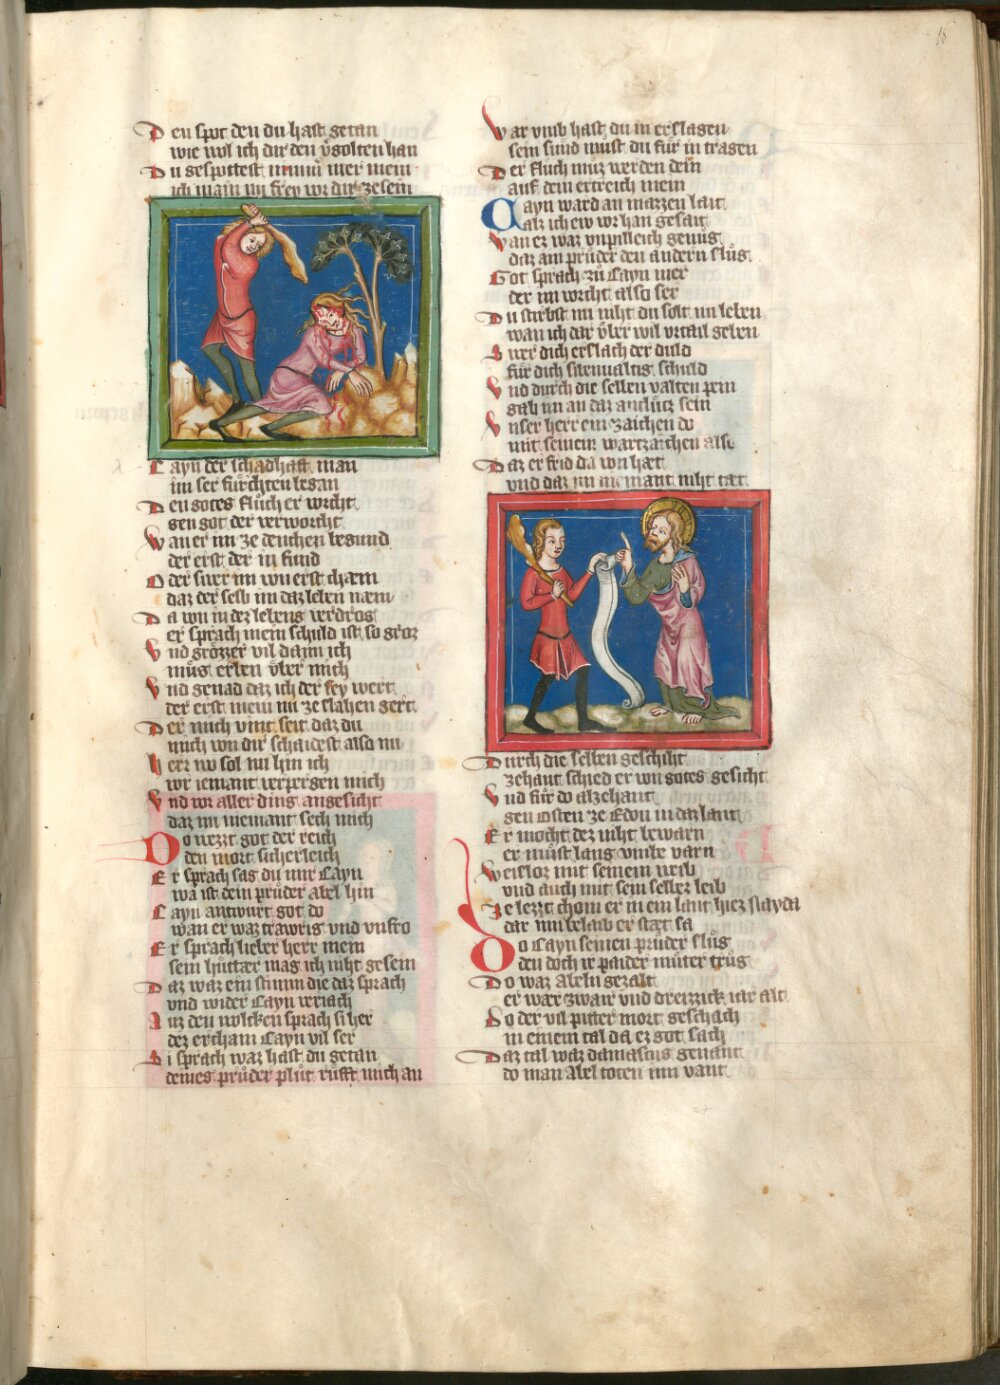 Den spot den du hast getan
wie wol ich dir den v̓golten han
Du gespottest nimm̄ mer mein
ich main nu frey vor dir zesein
Cayn der schadhaft man
im ser fürchten began
Den gotes flůch er vorcht
gen got der verworcht
Wan er im ze deuchen begund
der erst der in fund
Oder swer im von erst chæm
daz der selb im daz leben næm
Da von in dez lebens verdros
er sprach mein schuld ist so groz
Vnd grözzer vil dann ich
müg erben vber mich
Vnd genad daz ich der sey wert
der erst mein mi ze slahen gert
Der mich vint seit daz du
mich von dir schaidest also nu
Herr wo sol nu hin ich
vor iemant verpergen mich
Vnd vor aller ding angesicht
daz nu niemant sech mich
Do wezzt got der reich
den mort sicherleich
Er sprach sag du mir Cayn
wa ist dein průder abel hin
Cayn antwurt got do
wan er waz trawrig vnd vnfro
Er sprach lieber herr mein
sein hüttær mag ich niht gesein
Daz waz ein stimm die daz sprach
vnd wider Cayn veriach
Auz den wolcken sprach si her
dez ercham Cayn vil ser
Si sprach waz hast du getan
deines průder plůt růfft mich an
War vmb hast du in erslagen
sein sund must du für in tragen
Der fluch muz werden dein
auf dem ertreich mein
Cayn ward an mazzen lait
alz ich ew vor han gesait
Wan er waz vnpilleich genůg
daz ain průder den andern slůg
Got sprach zů Cayn mer
der im vorcht also ser
Du stirbst nu niht du solt nu leben
wan ich dar vber wil vrtail geben
Swer dich erslach der duld
für dich sibenualtig schuld
Vnd durch die selben valten pein
gab im an daz anclütz sein
Vnser herr ein zaichen do
mit seinem wartzaichen also
Daz er frid da von hæt
vnd daz im niemant niht tæt
Durch die selben geschiht
zehant schied er von gotes gesicht
Vnd für do alzehant
gen Osten ze Edon in daz lant
Er mocht dez niht bewarn
er můst lang vmbe varn
Weislos mit seinem weib
vnd auch mit sein selbez leib
Ze letzt chom er in ein lant hiez Nayda
dar inn belaib er stæt sa
Do Cayn seinen průder slůg
den doch ir paider můter trůg
Do waz Abeln gezalt
er wær zwair vnd dreizzick iar alt
Do der vil pitter mort geschach
in einem tal da ez got sach
Daz tal waz damascus genant
do man Abel toten inn vant